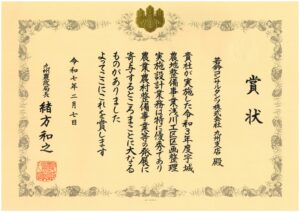 賞状
若鈴コンサルタンツ株式会社 九州支店 殿
貴社が実施した令和3年度宇城
農地整備事業浅川工区区画整理
実施設計業務は特に優秀であり
農業、農村整備事業等の発展に
寄与するところまことに大なる
ものがありました
よってここにこれを賞します
令和七年二月七日
九州農政局長
緒方和之